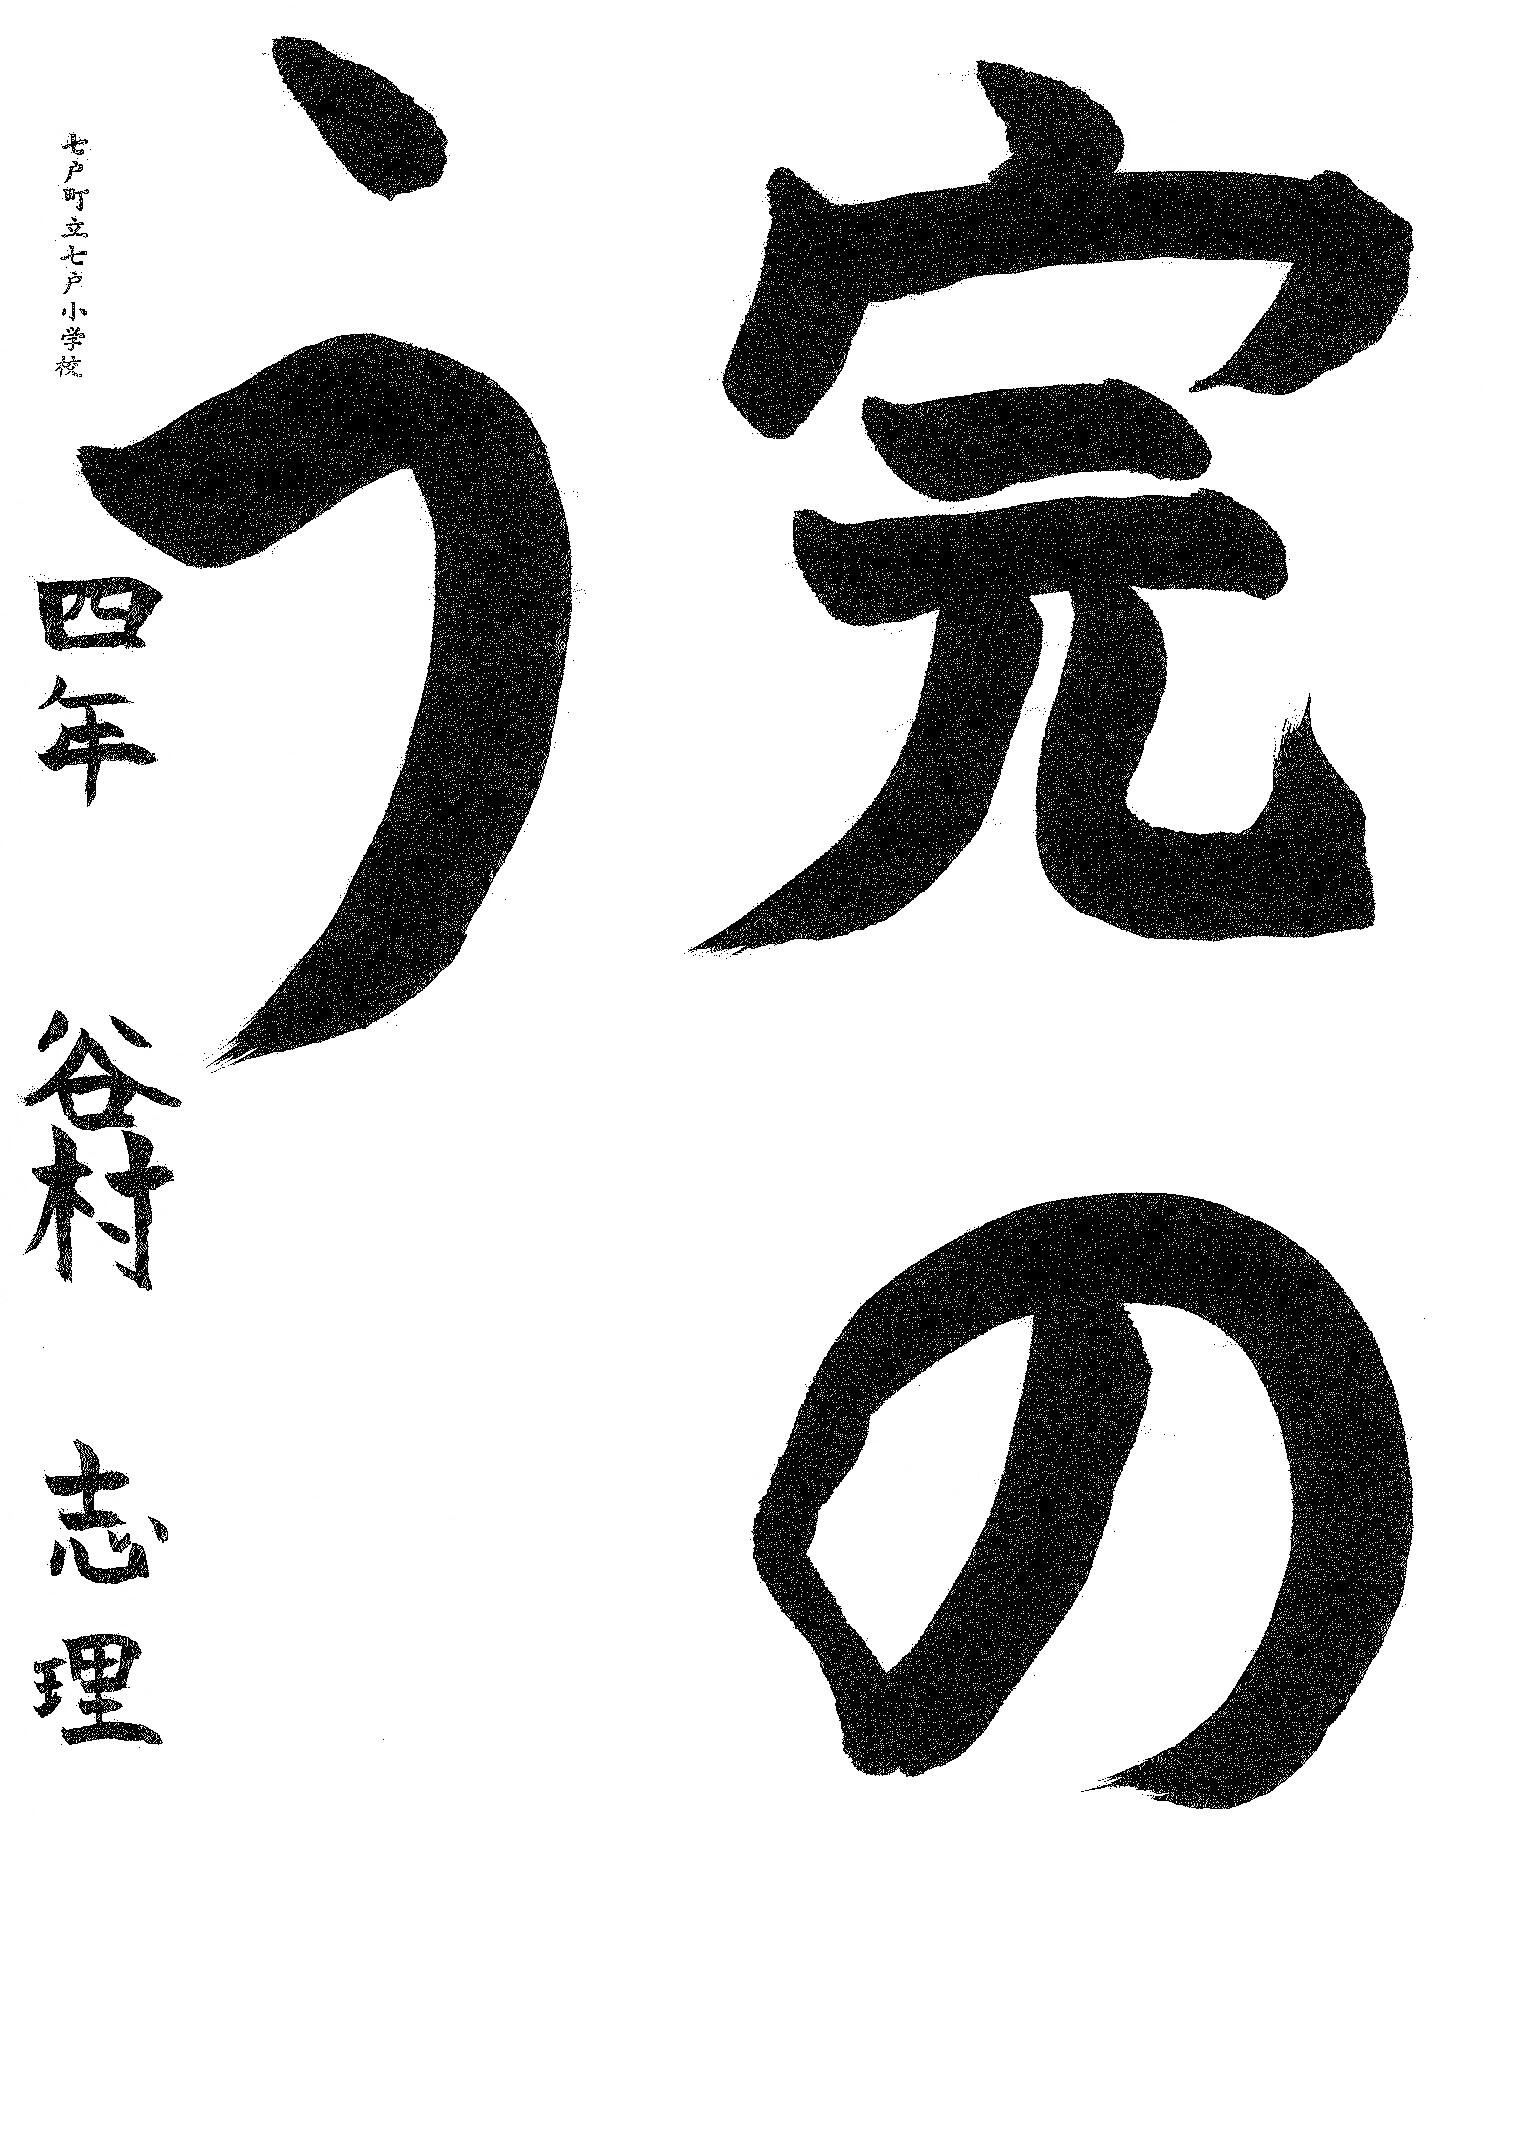 完の
う
七戸町立七戸小学校
四年 谷村 志理